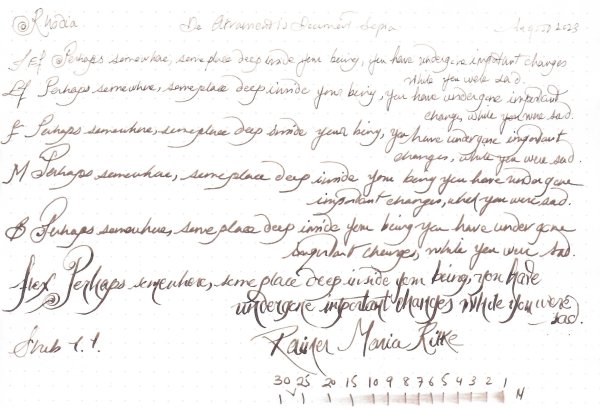 Rhodia De Atramentis Document Sepia August 2023
EEF Perhaps somewhere, someplace deep inside your being, you have undergone important changes
while you were sad.
EF Perhaps somewhere, someplace deep inside your being, you have undergone important
changes, while you were sad.
F Perhaps somewhere, someplace deep inside your being, you have undergone important
changes, while you were sad.
M Perhaps somewhere, someplace deep inside your being you have undergone
important changes, while you were sad.
B Perhaps somewhere, someplace deep inside your being you have undergone
important changes, while you were sad.
flex Perhaps somewhere, someplace deep inside your being, you have
undergone important changes while you were
sad.
Stub 1.1. Rainer Maria Rilke
30 25 20 15 10 9 8 7 6 5 4 3 2 1